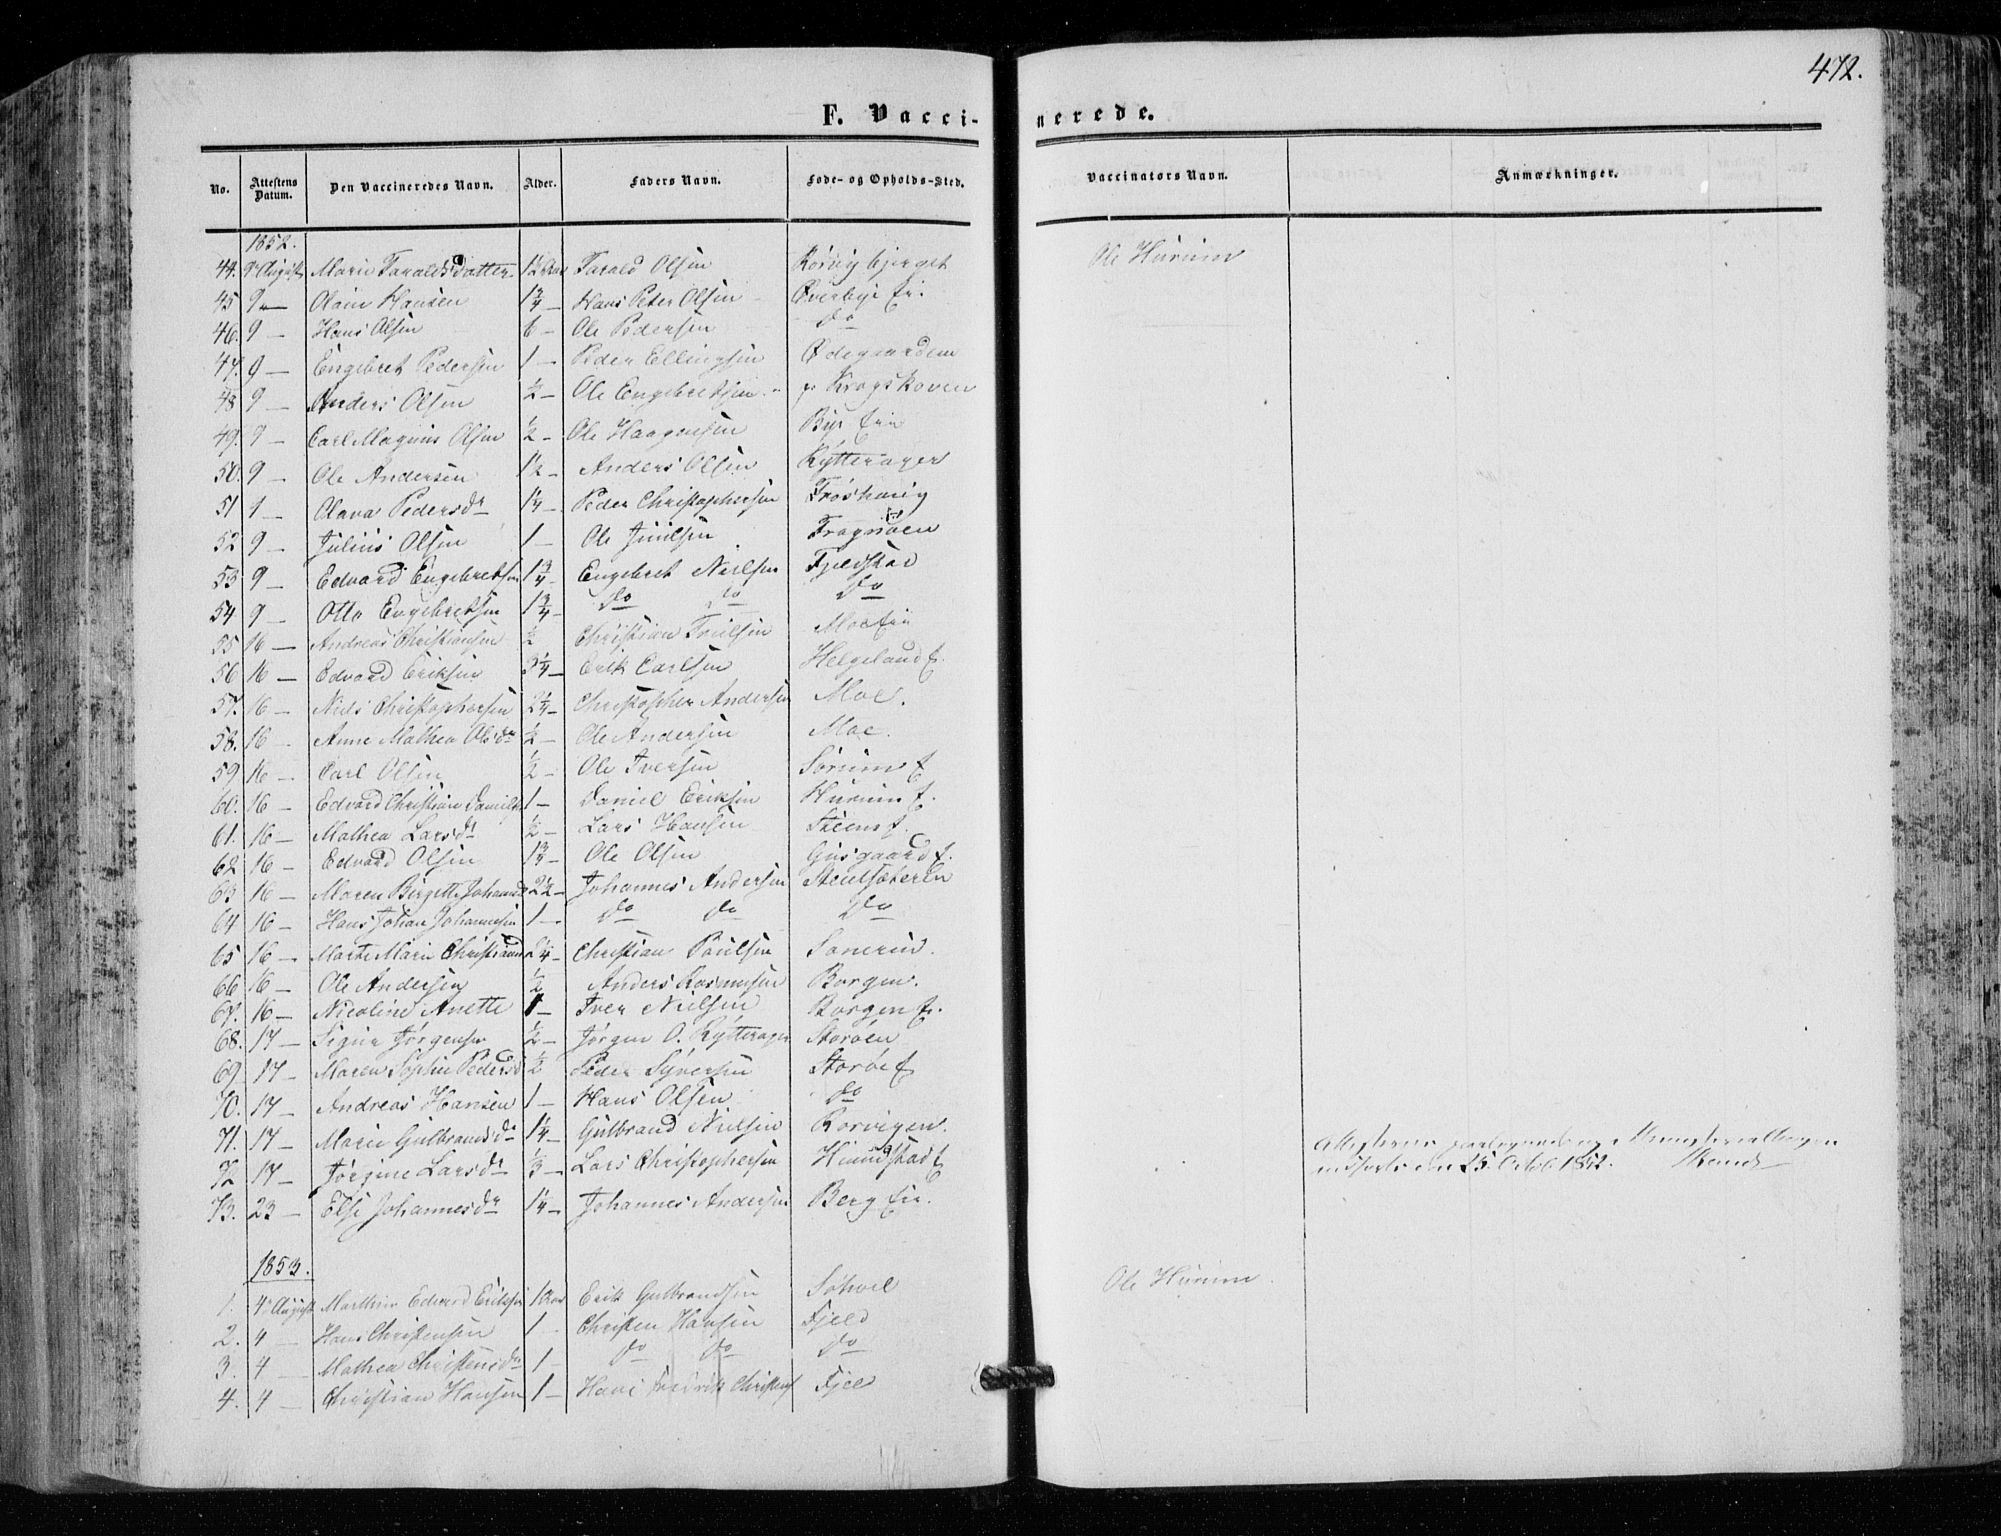 472.
F. Vacci-nerede.
No. Attestens Datum. Den Vaccineredes Navn. Alder. Faders Navn. Føde- og Opholds-Sted. Vaccinators Navn. Anmærkninger.
1852.
44. 9 August Marie Taraldsdatter 1½ Aar Tarald Olsen Rørvigbjerget Ole Hurum
45 9 — Hansen 1¾ — Hans Peter Olsen Øverbye Ei.
46. 9 — Hans Olsen 6 — Ole Pedersen do
47. 9 — Engebret Pedersen 1 — Peder Ellingsen Ødegaarden
48 9 — Anders Olsen ½ — Ole Engebretsen Krogskoven
49. 9 — Carl Magnus Olsen ½ — Ole Haagensen Bye Eie
50. 9 — Ole Andersen 1½ — Anders Olsen Rytterager
51 1 — Olava Pedersdr 1¼ — Peder Christophersen Frøshoug
52 9 — Julius Olsen 1 — Ole Juulsen Fragnøen
53 9 — Edvard Engebretsen 1¾ — Engebret Nielsen Fjeldstad
54 9 — Otto Engebretsen 1¾ — do do do
55 16 — Andreas Christiansen ½ Christian Moe Eie
56 16 — Edvard Eriksen 3¼ — Erik Carlsen Helgeland E.
57. 16 — Niels Christophersen 2¼ — Christopher Andersen Moe.
58. 16 — Anne Mathea Olsdr ½ — Ole Andersen Moe.
59 16 — Carl Olsen ½ — Ole Iversen Sørum E
60. 16 — Edvard Christian Daniels 1 — Daniel Eriksen Hurum E.
61. 16 — Mathea Larsdr ½ — Lars Hansen Steens E.
62 16 — Edvard Olsen 1¾ — Ole Olsen Gusgaard E.
63 16 — Maren Birgitte Johannesd 2½ — Johannes Andersen Steensæteren
64 16 — Hans Johan Johannesen 1 — do do do
65 16 — Marte Marie Christiansd 2¼ — Christian Poulsen Sonerud.
66 16 — Ole Andersen ½ Anders Rasmusen Borgen.
67. 16 — Nicoline Anette 1 — Iver Nielsen Borgen E.
68. 17 — Signe Jørgensen ½ — Jørgen O. Rytterager Storøen
69 17 — Maren Sophie Pedersd ½ Peder Syversen Storøe E
70. 17 — Andreas Hansen 1 — Hans Olsen do
71. 17 — Marie Gulbransdr 1¼ — Gulbrand Nielsen Rørvigen.
72 17 — Jørgine Larsdr ⅓ — Lars Christophersen Hundstad E
73. 23 — Else Johannesdr 1¼ — Johannes Andersen Berg Eie.
Attesterne og
indførte den 25 Octob 1852.
1853.
1. 4 August Marthin Edvard Eriksen 1 Aar Erik Gulbrandsen Solvel Ole Hurum
2. 4 — Hans Christensen 1 — Christen Hansen Fjeld
3. 4 — Mathea Christensdr 1 — do do do
4. 4 — Christian Hansen 1 — Hans Fredrik Christens Fjeld